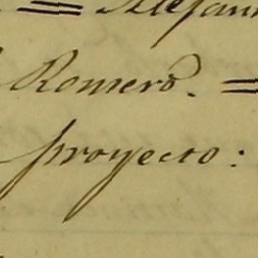 = Alejan
Romero. =
proyecto: